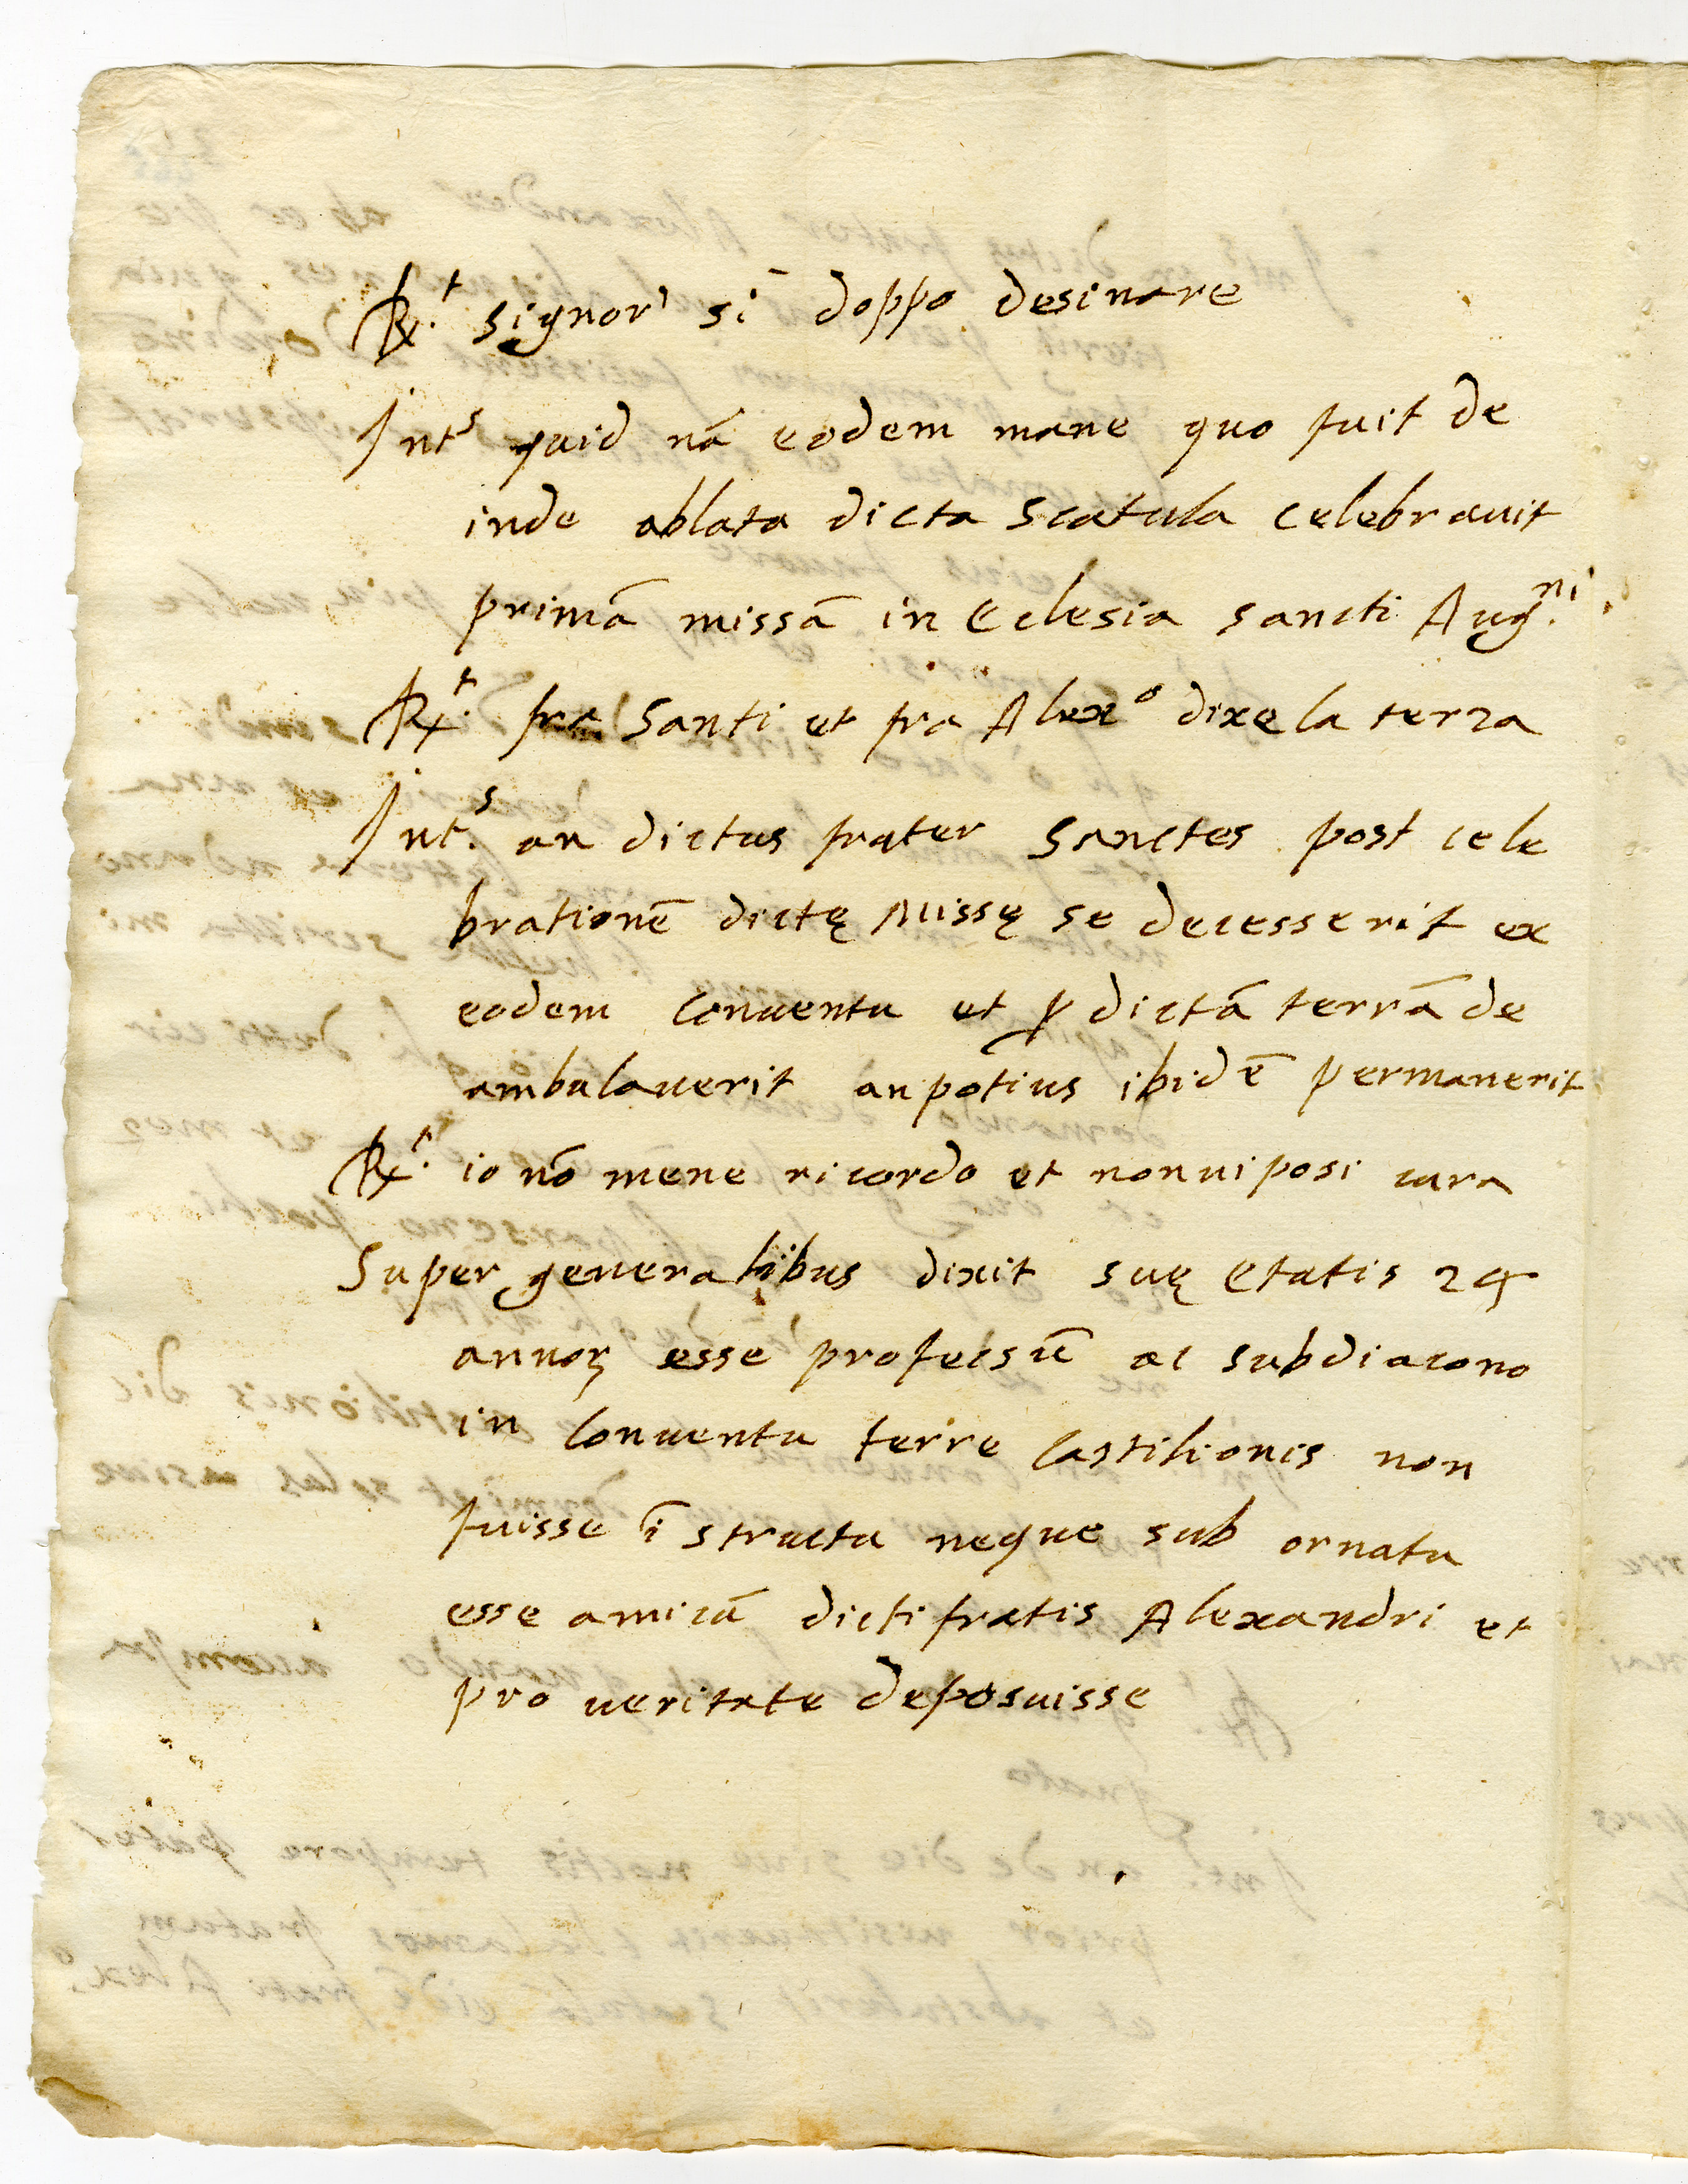 R.t signor' si doppo desinare
Int.s quid nā eodem mane quo fuit de
inde ablata dicta scatula celebrauit
primā missā in Eclesia sancti Aug.ni
R.t fra Santi et fra Alex.o dixe la terza
Int.s an dictus frater Sanctes post cele
brationē dictę Missę se decesserit ex
eodem conuentu et ꝑ dictā terrā de
ambulauerit an potius ibidē permanerit
R.t io nō mene ricordo et non ui posi cura
Super generalibus dixit suę etatis 24
annoꝝ esse profecsū ac subdiacono
in conuentu terre Castilionis non
fuisse ī structu neque sub ornatu
esse amicū dicti fratis Alexandri et
pro ueritate deposuisse